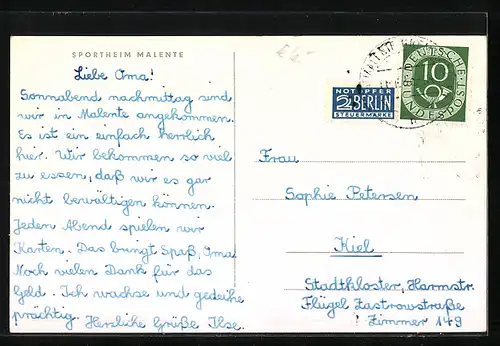 SPORTHEIM MALENTE
Liebe Oma!
Sonnabend nachmittag sind
wir in Malente angekommen.
Es ist ein einfach herrlich
hier. Wir bekommen so viel
zu essen, daß wir es gar
nicht bewältigen können.
Jeden Abend spielen wir
Karten. Das bringt Spaß, Oma!
Noch vielen Dank für das
Geld. Ich wachse und gedeihe
prächtig. Herzliche Grüße Ilse.
NOTOPFER
2 BERLIN
STEUERMARKE
DEUTSCHE
10
BUNDESPOST
Frau
Sophie Petersen
Kiel
Stadtkloster, Harmstr.
Flügel Zastrowstraße
Zimmer 149